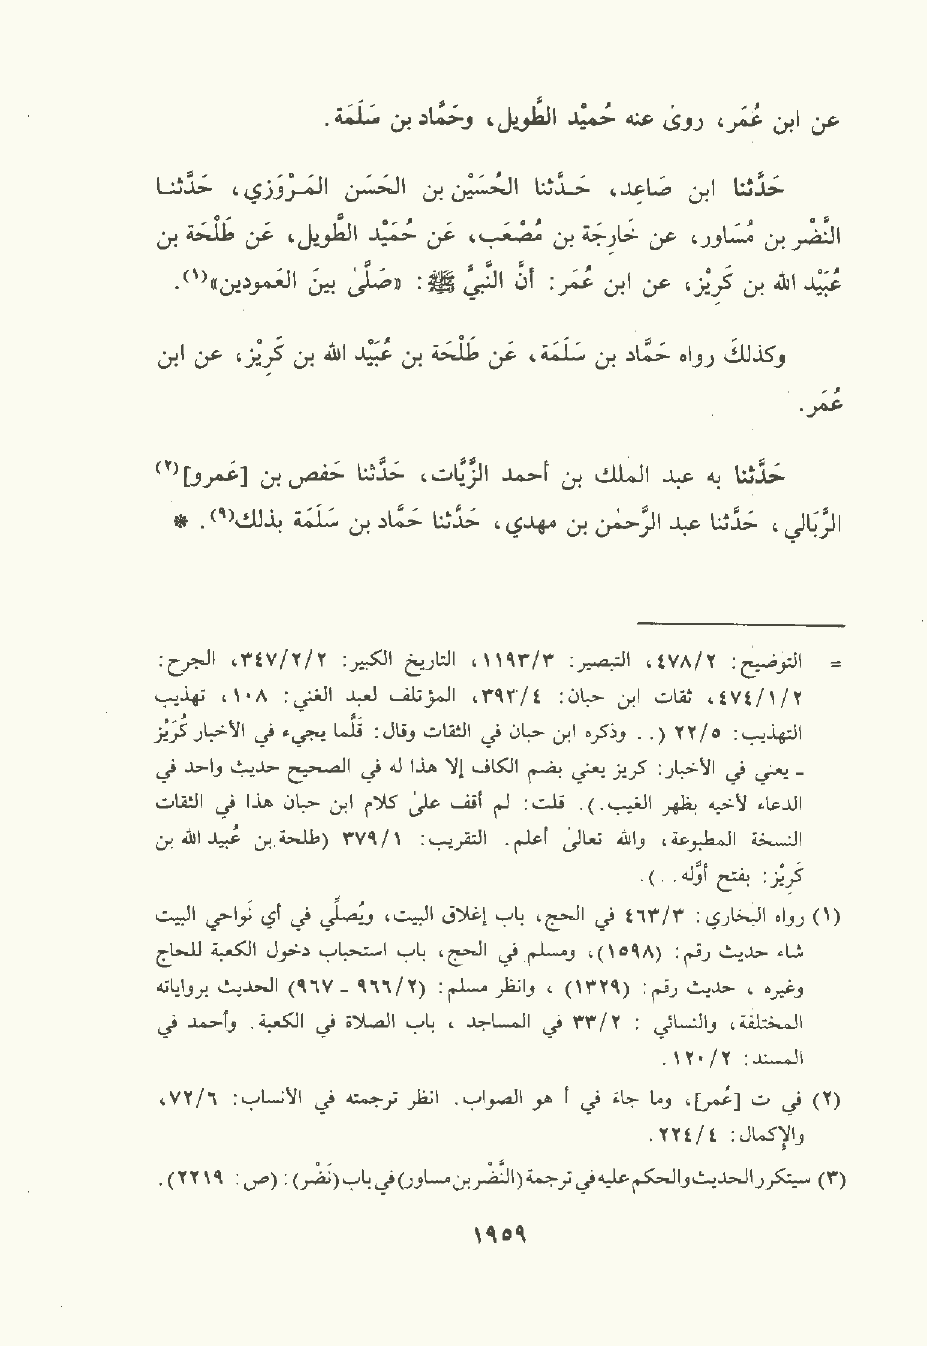 عن ابن عُمَر، روىٰ عنه حُميْد الطَّويل، وحَمَّاد بن سَلَمَة.
حَدَّثنا ابن صَاعِد، حَدثنا الحُسَيْن بن الحَسَن المَرْوَزي، حَدَّثنا
النَّضْر بن مُسَاور، عن خَارِجَة بن مُصْعَب، عَن حُمَيْد الطَّويل، عَن طَلْحَة بن
عُبَيْد الله بن كَرِيْز، عن ابن عُمَر: أنَّ النَّبيَّ ﷺ: «صَلَّىٰ بينَ العَمودين»(١).
وكذلكَ رواه حَمَّاد بن سَلَمَة، عَن طَلْحَة بن عُبَيْد الله بن كَرِيْز، عن ابن
عُمَر.
حَدَّثنا به عبد الملك بن أحمد الزَّيَّات، حَدَّثنا حَفص بن [عَمرو](٢)
الرَّبَالي، حَدَّثنا عبد الرَّحمٰن بن مهدي، حَدَّثنا حَمَّاد بن سَلَمَة بذلك(٩). *
= التوضيح: ٤٧٨/٢، التبصير: ١١٩٣/٣، التاريخ الكبير: ٣٤٧/٢/٢، الجرح:
٤٧٤/١/٢، ثقات ابن حبان: ٣٩٣/٤، المؤتلف لعبد الغني: ١٠٨، تهذيب
التهذيب: ٢٢/٥ (.. وذكره ابن حبان في الثقات وقال: قَلَّما يجيء في الأخبار كُرَيْز
- يعني في الأخبار: كريز يعني بضم الكاف إلا هذا له في الصحيح حديث واحد في
الدعاء لأخيه بظهر الغيب.). قلت: لم أقف علىٰ كلام ابن حبان هذا في الثقات
النسخة المطبوعة، والله تعالىٰ أعلم. التقريب: ٣٧٩/١ (طلحة بن عُبيد الله بن
كَرِيْز: بفتح أوَّله..).
(١) رواه البخاري: ٤٦٣/٣ في الحج، باب إغلاق البيت، ويُصلِّي في أي نَواحي البيت
شاء حديث رقم: (١٥٩٨)، ومسلم في الحج، باب استحباب دخول الكعبة للحاج
وغيره، حديث رقم: (١٣٢٩)، وانظر مسلم: (٩٦٦/٢ - ٩٦٧) الحديث برواياته
المختلفة، والنسائي: ٣٣/٢ في المساجد، باب الصلاة في الكعبة. وأحمد في
المسند: ١٢٠/٢.
(٢) في ت [عُمر]، وما جاءَ في أ هو الصواب. انظر ترجمته في الأنساب: ٧٢/٦،
والإكمال: ٢٢٤/٤.
(٣) سيتكرر الحديث والحكم عليه في ترجمة (النَّضْر بن مساور) في باب (نَضْر): (ص: ٢٢١٩).
١٩٥٩